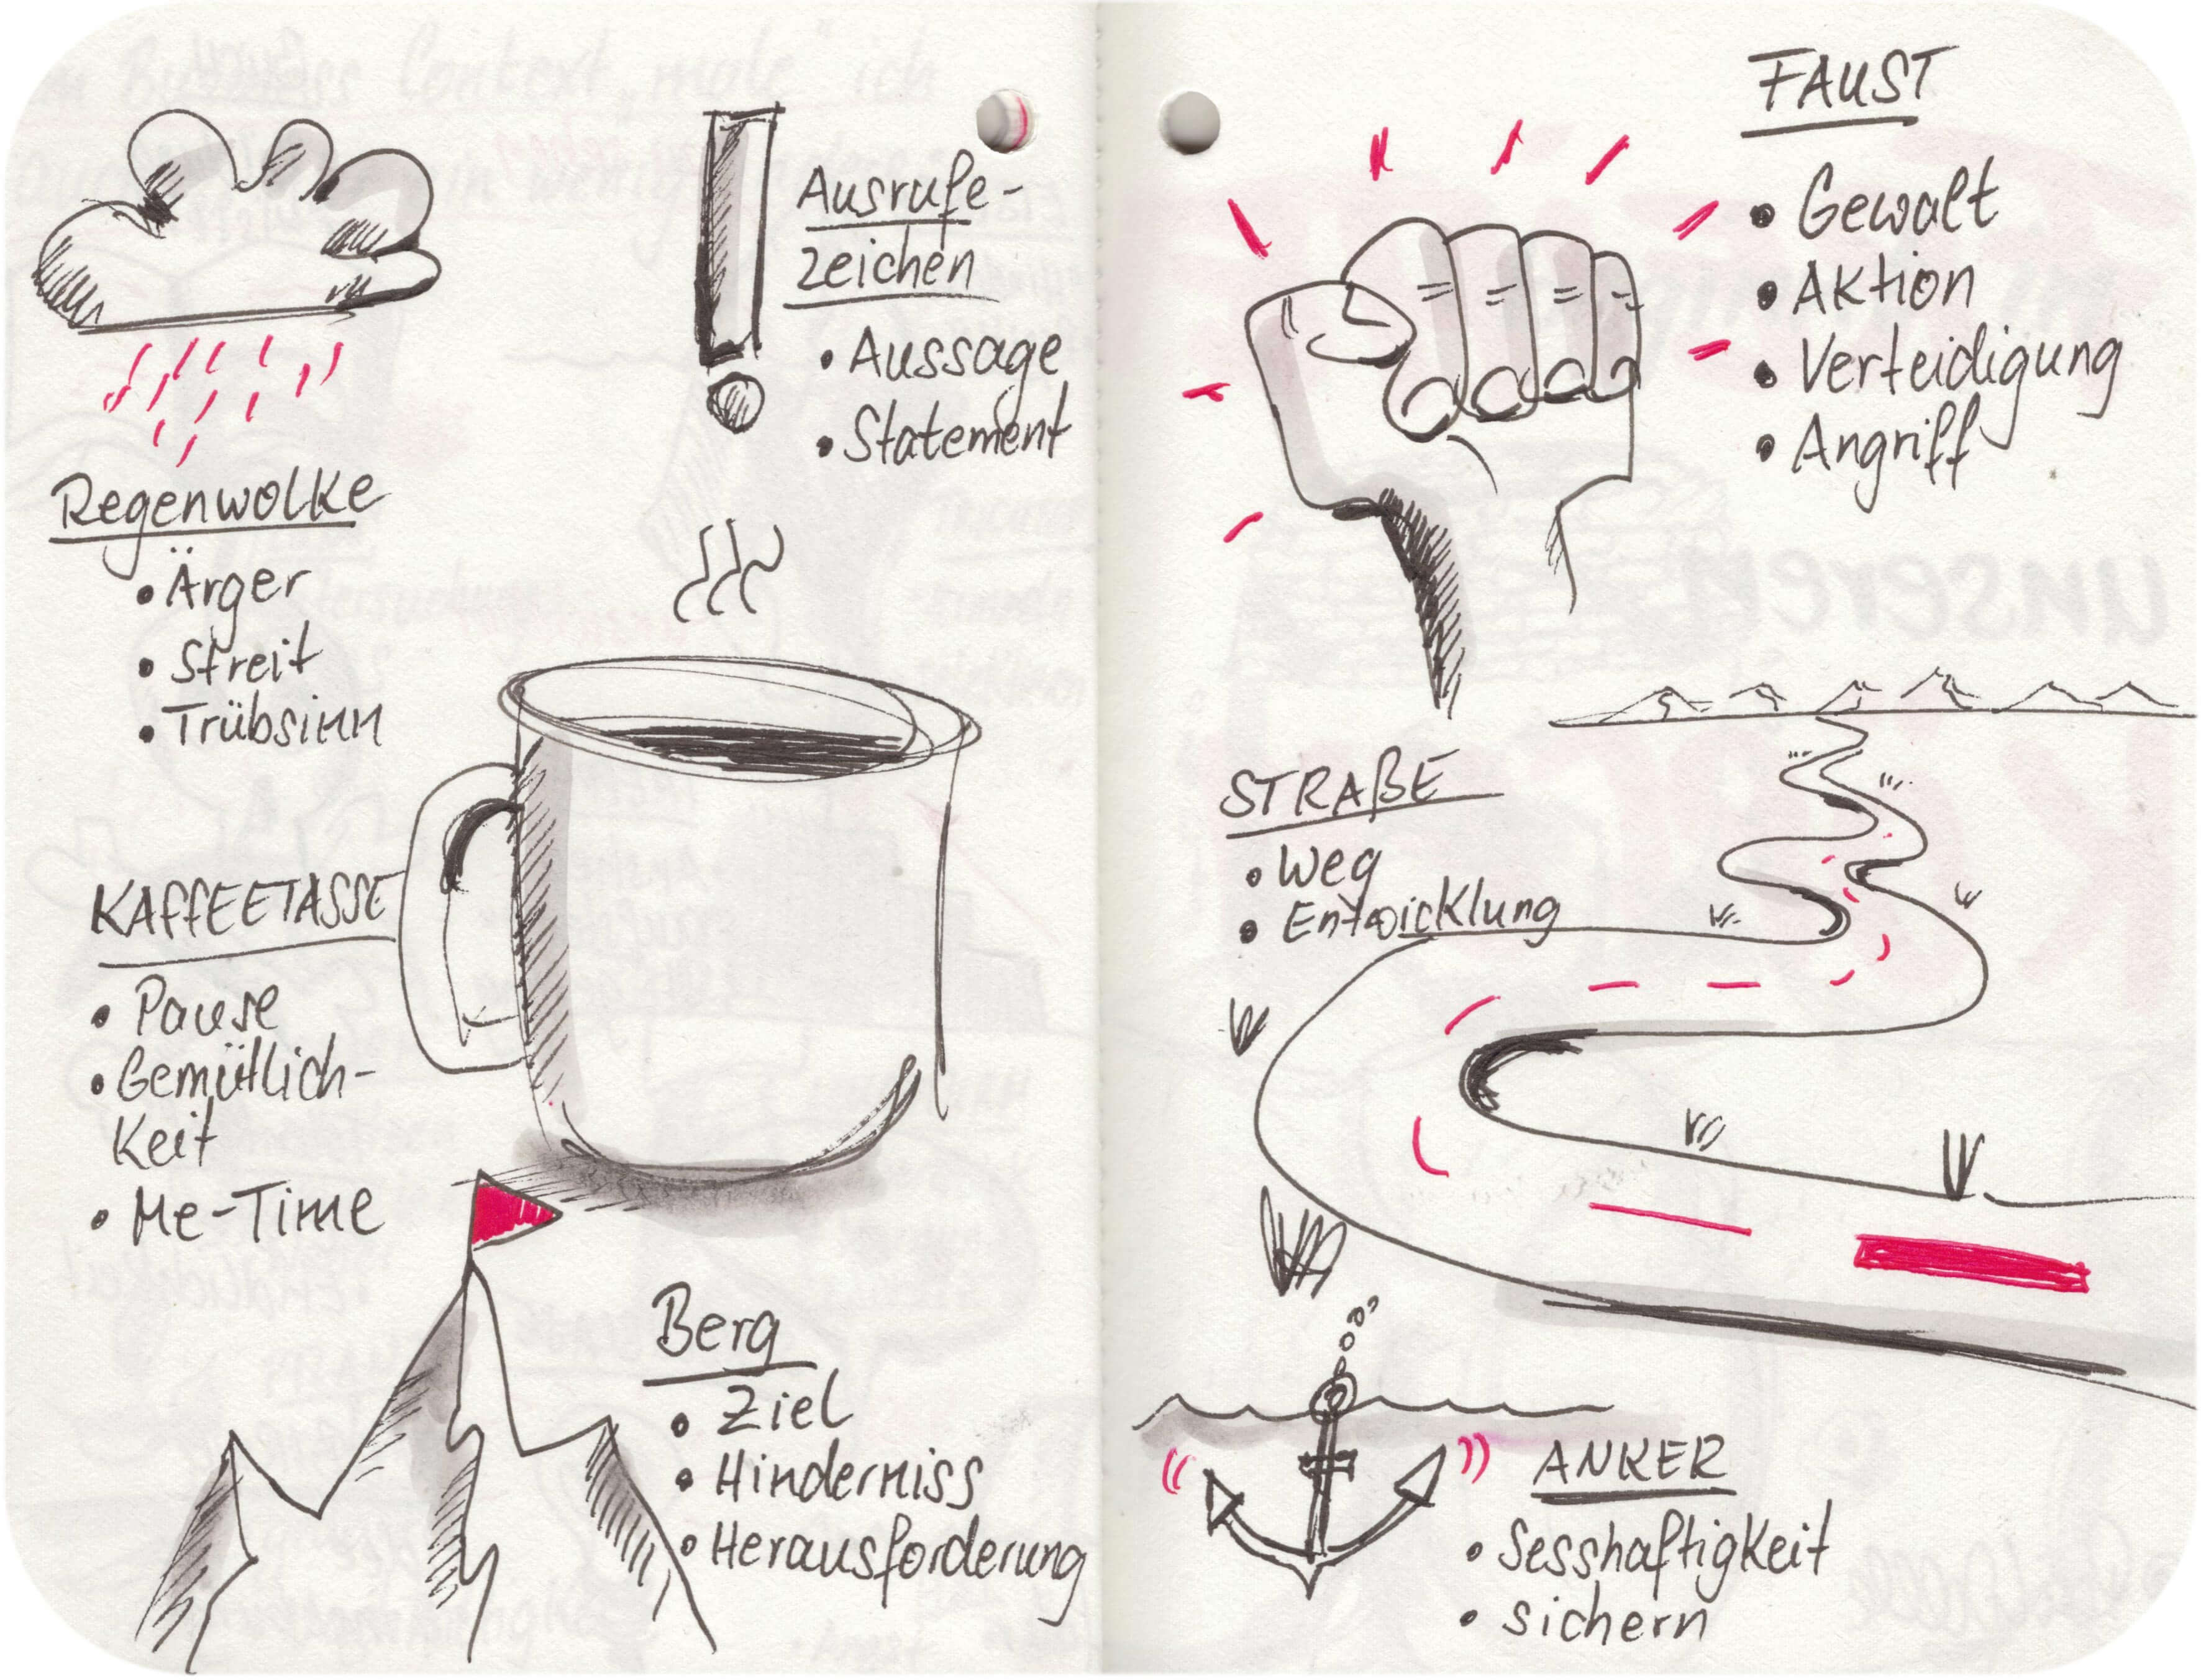 Regenwolke
• Ärger
• Streit
• Trübsinn
Ausrufe-
zeichen
• Aussage
• Statement
KAFFEETASSE
• Pause
• Gemütlich-
keit
• Me-Time
Berg
• Ziel
• Hinderniss
• Herausforderung
FAUST
• Gewalt
• Aktion
• Verteidigung
• Angriff
STRAßE
• Weg
• Entwicklung
ANKER
• Sesshaftigkeit
• sichern